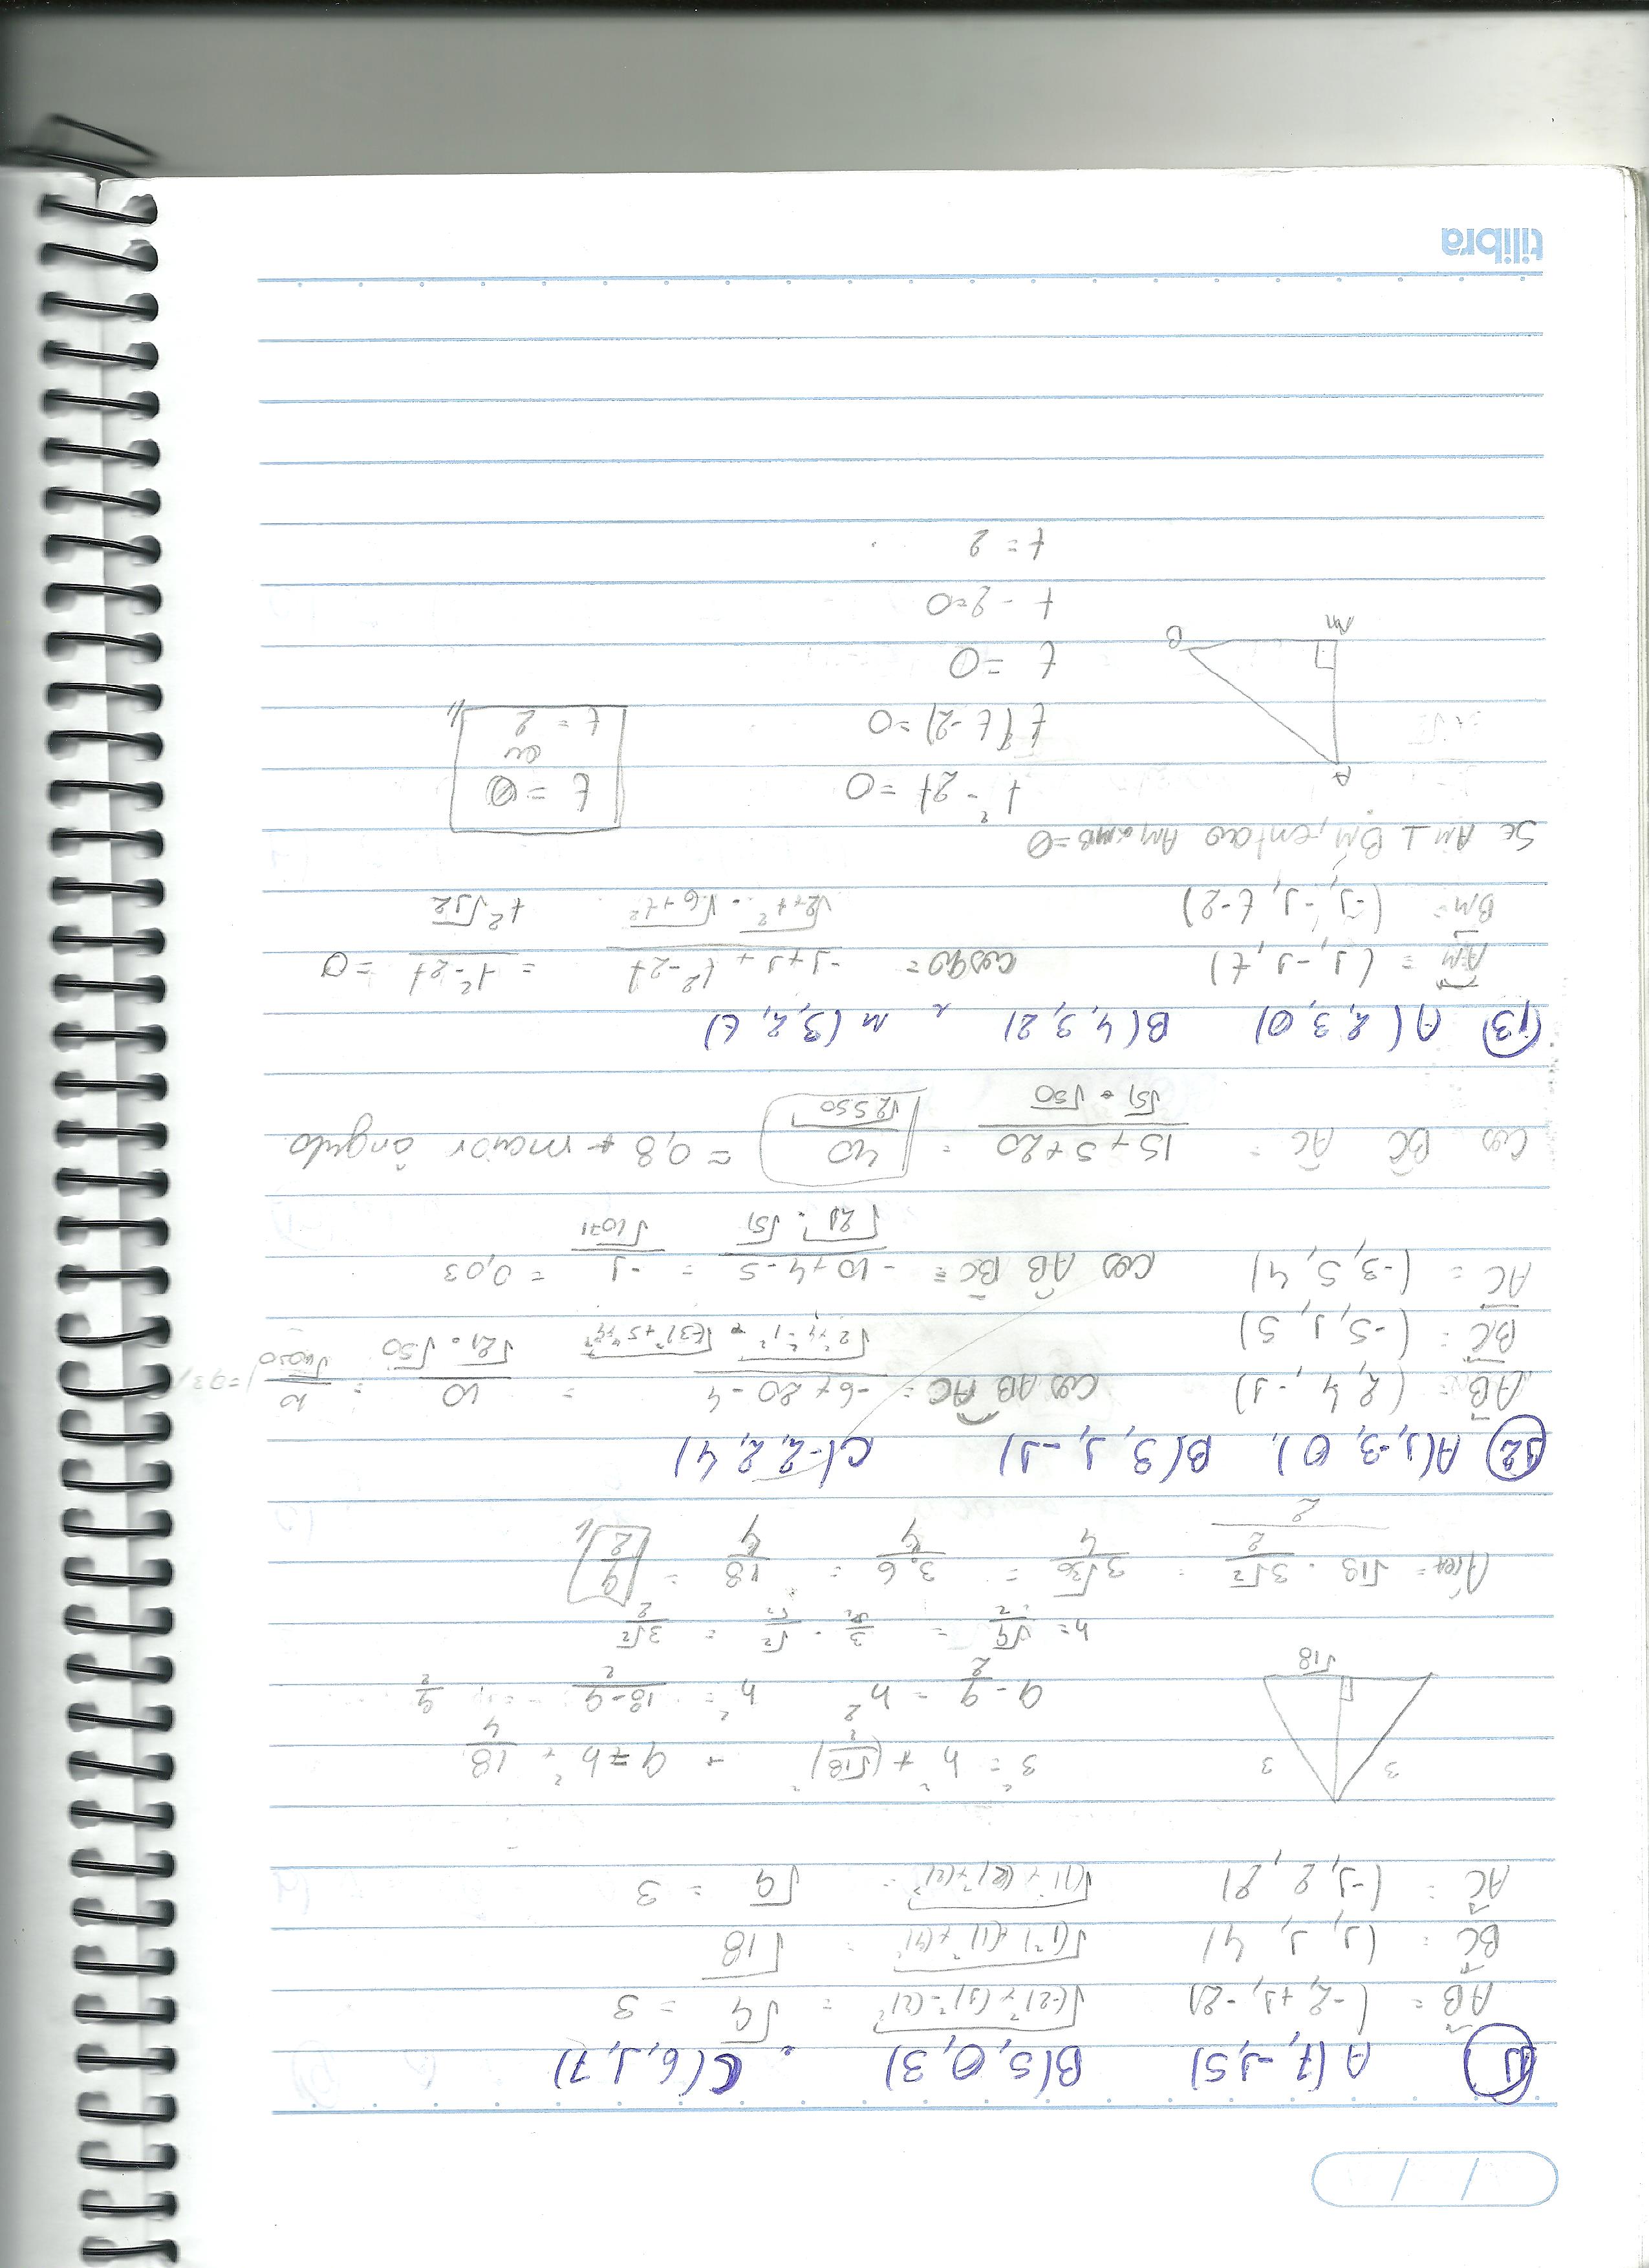 / /
11) A(7, -1, 5) B(5, 0, 3) . C(6, 1, 7)
AB = (-2, +1, -2) √(-2)²+(1)²-(2)² = √9 = 3
BC = (1, 1, 4) √(1²)+(1)²+(4)² = √18
AC = (-1, 2, 2) √(1)²+(2)²+(2)² = √9 = 3
3 3 √18
3² = h² + (√18/2)² → 9 = h² + 18/4
9 - 9/2 = h² h² = 18-9/2 = 9/2
h = √9/√2 = 3/√2 · √2/√2 = 3√2/2
Área = √18 . 3√2/2 / 2 = 3√36/4 = 3.6/4 = 18/4 = 9/2
12) A(1, -3, 0). B(3, 1, -1) C(-2, 2, 4)
AB = (2, 4, -1) cos AB AC = -6+20-4 / √2²+4²-1² . √(-3)²+5²+4² = 10/√21.√50 = 10/√1050
BC = (-5, 1, 5)
AC = (-3, 5, 4) cos AB BC = -10+4-5 / √21 . √51 = -1/√1071 = 0,03
cos BC AC = 15+5+20 / √51 . √50 = 40/√2550 = 0,8 ← maior ângulo
13) A(2, 3, 0) B(4, 3, 2) , M(3, 2, t)
AM = (1, -1, t) cos90 = -1+1+t²-2t / √2+t² . √6+t² = t²-2t / t²√12 = 0
BM = (-1, -1, t-2)
Se AM ⊥ BM, entao AM . MB = 0
t² - 2t = 0
t (t-2) = 0
t = 0
t - 2 = 0
t = 2
t = 0
ou
t = 2
A
M B
tilibra